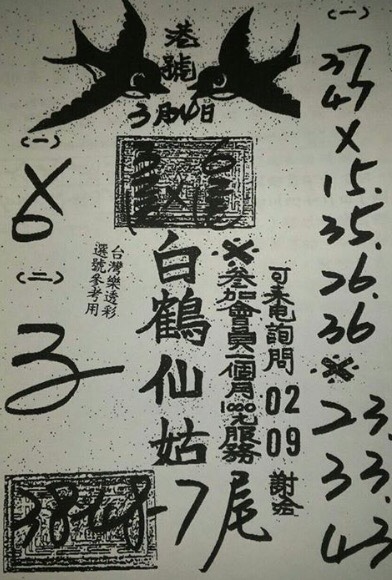 港號
3月4日
(一)
(二)
3
台灣樂透彩
選號參考用
白鶴仙姑
※參加會員一個月1000元服務
可来電詢問
02
09
謝金
38 48 7尾
(一)
37
47
X
15.
35.
26.
36
※
23
33
43